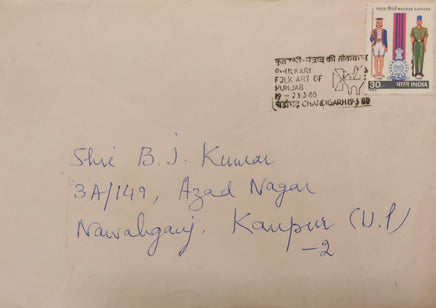 मद्रास सैपर्स MADRAS SAPPERS
30 भारत INDIA
फुलकारी-पंजाब की लोककला
PHULKARI
FOLK ART OF
PUNJAB
19-23.3.80
चंडीगढ़ CHANDIGARH 19.3.80
Shri B. J. Kumar
3A/149, Azad Nagar
Nawabganj. Kanpur (U.P)
-2